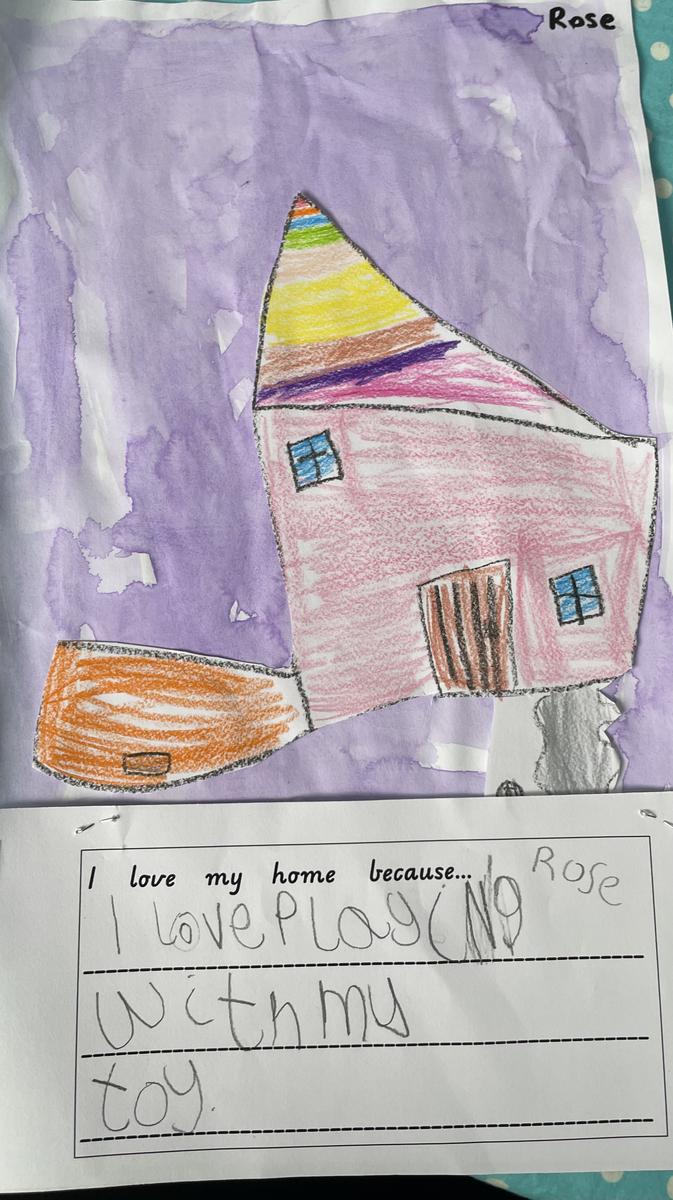 Rose
I love my home because... Rose
I love Playing
with my
toy.